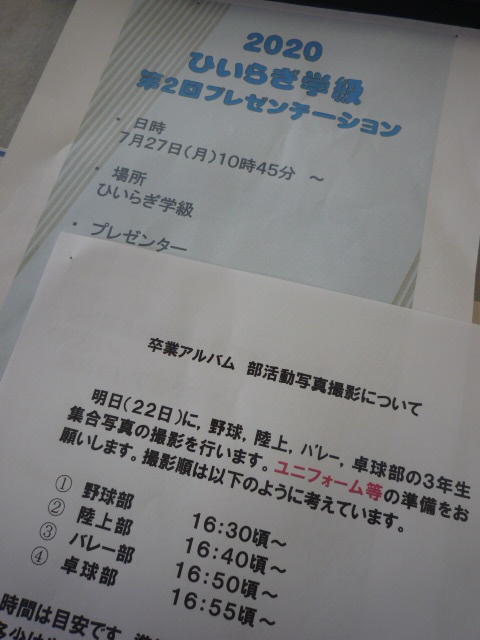 2020
ひいらぎ学級
第2回プレゼンテーション
・ 日時
7月27日(月)10時45分 ～
・ 場所
ひいらぎ学級
・ プレゼンター
卒業アルバム 部活動写真撮影について
明日(22日)に，野球，陸上，バレー，卓球部の3年生
集合写真の撮影を行います。ユニフォーム等の準備をお
願いします。撮影順は以下のように考えています。
① 野球部 16:30頃～
② 陸上部 16:40頃～
③ バレー部 16:50頃～
④ 卓球部 16:55頃～
時間は目安です。